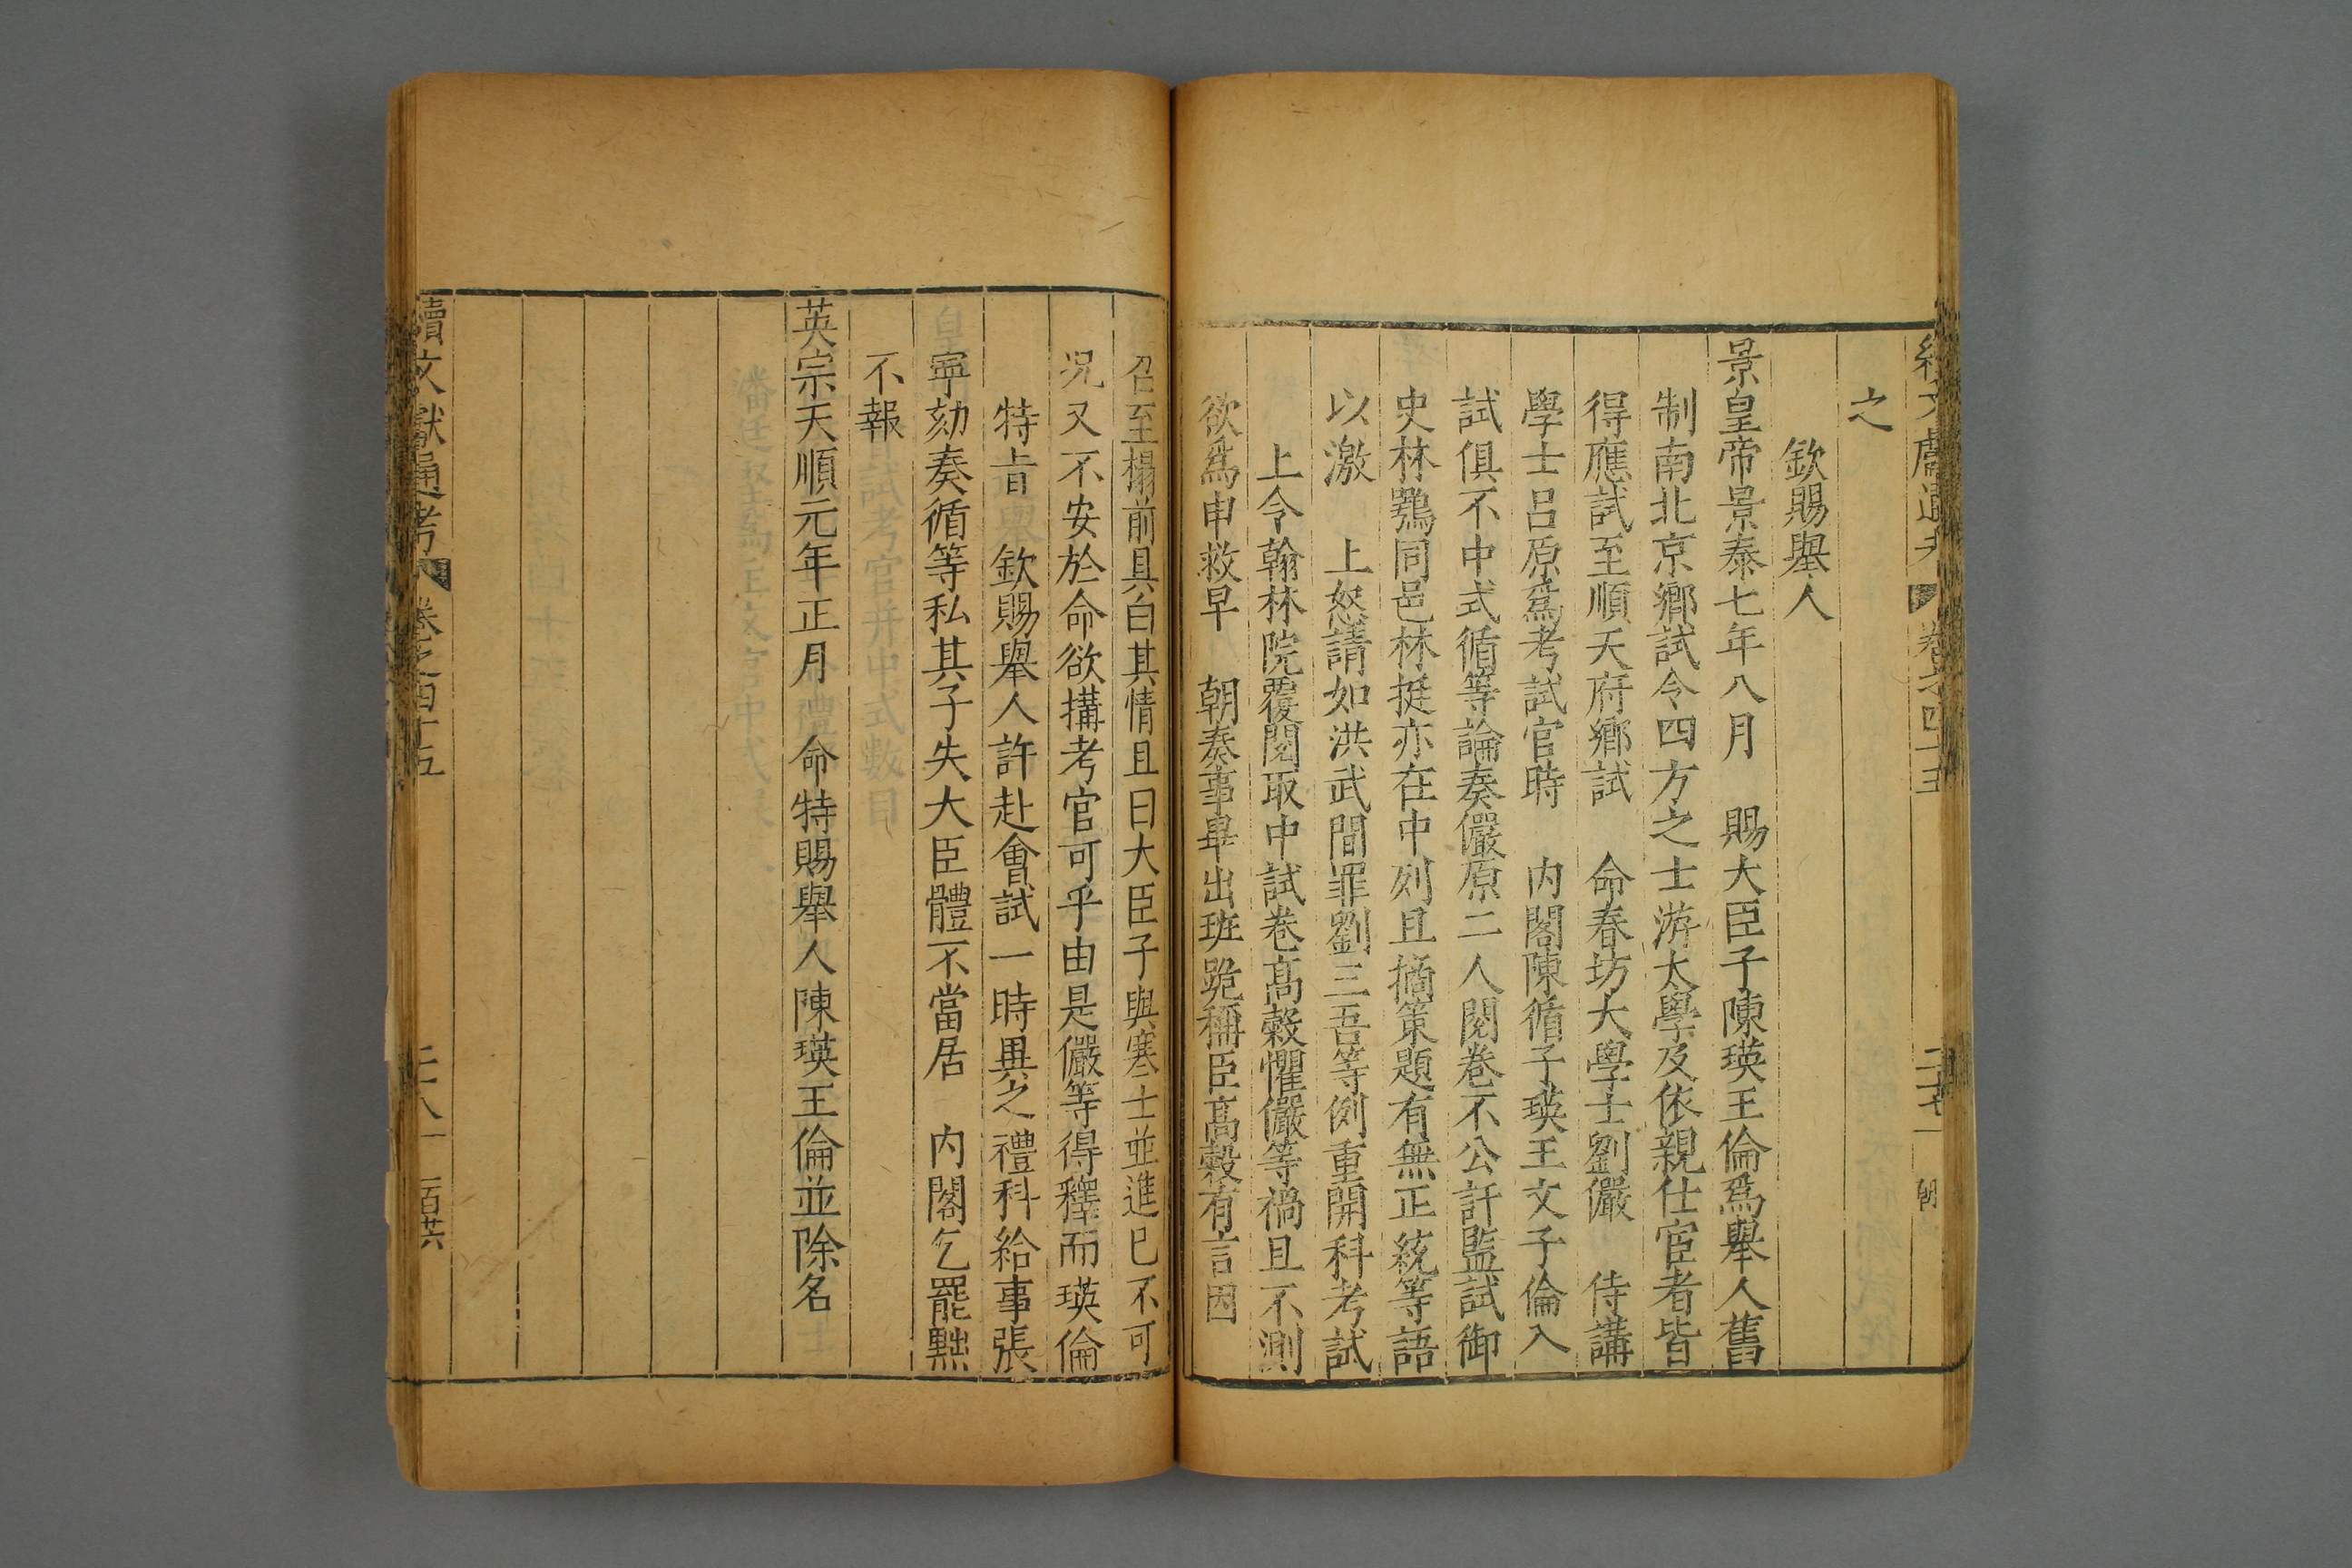 續文獻通考 卷之四十五 二十七
之
欽賜舉人
景皇帝景泰七年八月 賜大臣子陳瑛王倫爲舉人舊
制南北京鄉試令四方之士游太學及依親仕宦者皆
得應試至順天府鄉試 命春坊大學士劉儼 侍講
學士呂原爲考試官時 内閣陳循子瑛王文子倫入
試俱不中式循等論奏儼原二人閱卷不公許監試御
史林鶚同邑林挺亦在中列且摘策題有無正統等語
以激 上怒請如洪武間罪劉三吾等例重開科考試
上令翰林院覆閱取中試卷高穀懼儼等禍且不測
欲爲申救早 朝奏事畢出班跪稱臣高穀有言因
召至榻前具白其情且曰大臣子與寒士並進已不可
况又不安於命欲搆考官可乎由是儼等得釋而瑛倫
特旨 欽賜舉人許赴會試一時異之禮科給事張
寧劾奏循等私其子失大臣體不當居 内閣乞罷黜
不報
英宗天順元年正月 命特賜舉人陳瑛王倫並除名
續文獻通考 卷之四十五 二十八 百廿六